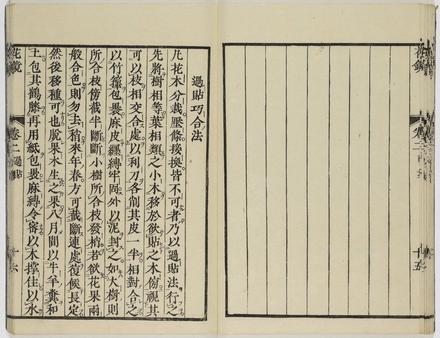 過貼巧合法
凡花木分栽壓條接換皆不可者乃以過貼法行之
先將樹相等葉相類之小木移於欲貼之木傍視其
可以枝相交合處以利刀各削其皮一半相對合之
以竹籜包裹麻皮纏縛牢固外以泥封之如大樹則
所合枝傍截半斷斷小樹所合枝發梢若欲花果兩
般合色則勿去稍來年春方可截斷連處復候長定
然後移種可也脫果木生之果八月間以牛羊糞和
土包其鶴膝再用紙包裹麻縛令密以木撐住以水
花鏡
卷二
過貼
十六
十五